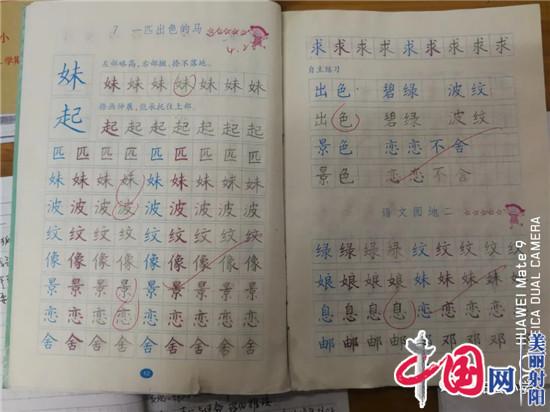 7 一匹出色的马
左部略高，右部撇、捺不落地。
妹 妹 妹 妹 妹 妹 妹 妹
捺画伸展，能承托住上部。
起 起 起 起 起 起 起 起
匹 匹 匹 匹 匹 匹 匹 匹
妹 妹 妹 妹 妹 妹 妹 妹
波 波 波 波 波 波 波 波
纹 纹 纹 纹 纹 纹 纹 纹
像 像 像 像 像 像 像 像
景 景 景 景 景 景 景 景
恋 恋 恋 恋 恋 恋 恋 恋
舍 舍 舍 舍 舍 舍 舍 舍
求 求 求 求 求 求 求 求
自主练习
出色 碧绿 波纹
出色 碧绿 波纹
景色 恋恋不舍
景色 恋恋不舍
语文园地二
绿 绿 绿 绿 纹 纹 纹 纹
娘 娘 娘 娘 妹 妹 妹 妹
息 息 息 息 恋 恋 恋 恋
邮 邮 邮 邮 邓 邓 邓 邓
HUAWEI Mate 9
LEICA DUAL CAMERA
中国网
美丽射阳